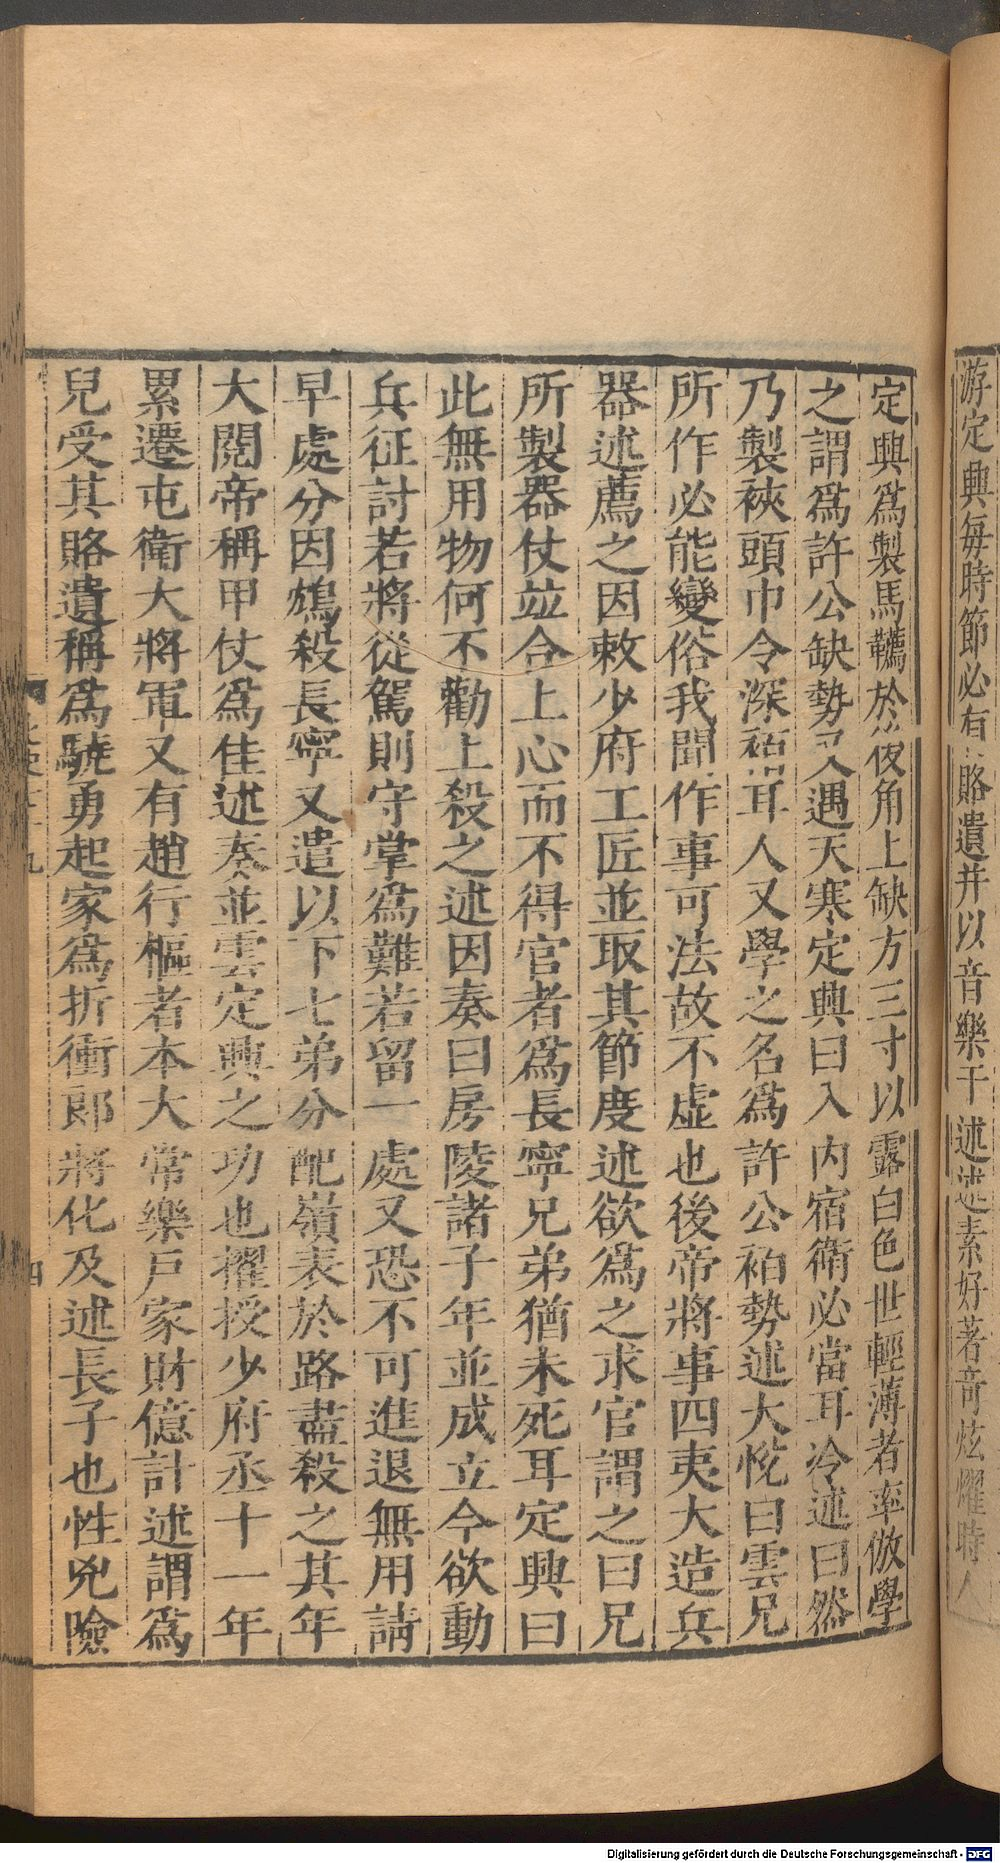 游定興每時節必有賂遺并以音樂干述述素好著奇炫燿時人
定興爲製馬韉於後角上缺方三寸以露白色世輕薄者率倣學
之謂爲許公缺勢又遇天寒定興曰入內宿衛必當耳冷述曰然
乃製裌頭巾令深袙耳人又學之名爲許公袙勢述大悅曰雲兄
所作必能變俗我聞作事可法故不虛也後帝將事四夷大造兵
器述薦之因敕少府工匠並取其節度述欲爲之求官謂之曰兄
所製器仗並合上心而不得官者爲長寧兄弟猶未死耳定興曰
此無用物何不勸上殺之述因奏曰房陵諸子年並成立今欲動
兵征討若將從駕則守掌爲難若留一處又恐不可進退無用請
早處分因鴆殺長寧又遣以下七弟分配嶺表於路盡殺之其年
大閱帝稱甲仗爲佳述奏並雲定興之功也擢授少府丞十一年
累遷屯衛大將軍又有趙行樞者本大常樂戶家財億計述謂爲
兒受其賂遺稱爲驍勇起家爲折衝郎將化及述長子也性兇險
四
Digitalisierung gefördert durch die Deutsche Forschungsgemeinschaft - DFG